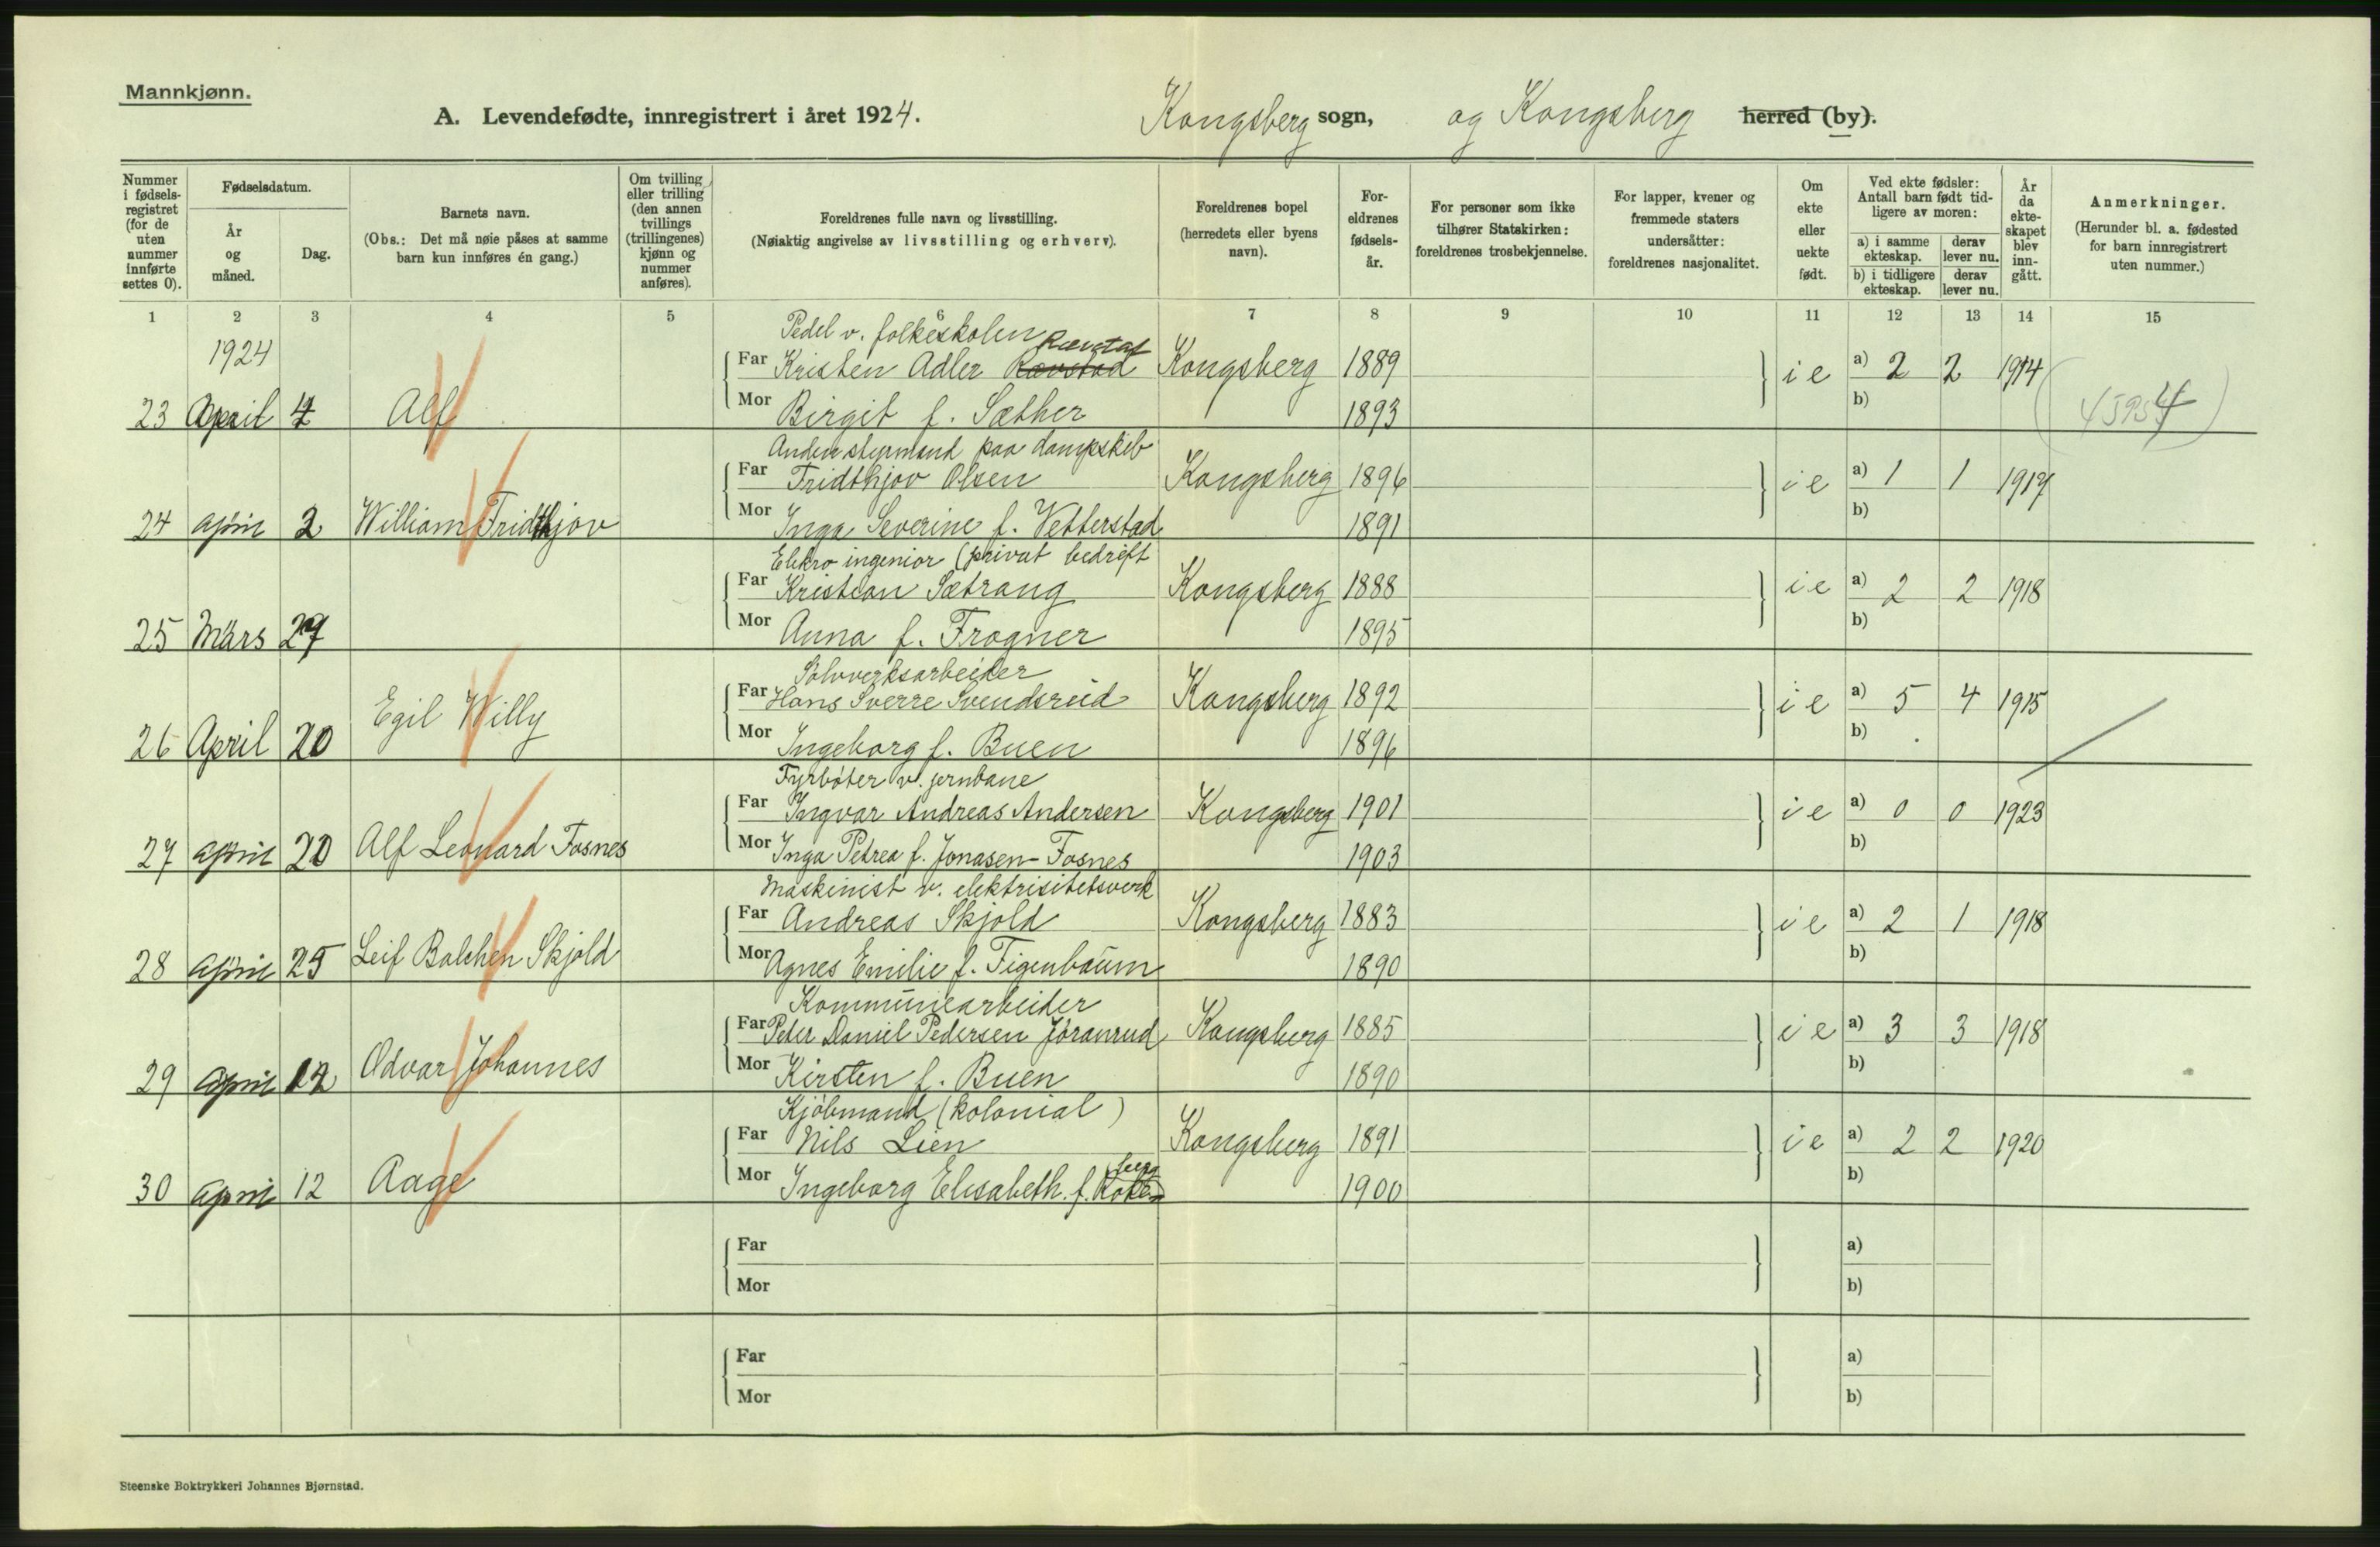 Mannkjønn.
A. Levendefødte, innregistrert i året 1924. Kongsberg sogn, og Kongsberg herred (by).
Nummer i fødsels-registret (for de uten nummer innførte settes 0).
Fødselsdatum.
År og måned.
Dag.
Barnets navn.
(Obs.: Det må nøie påses at samme barn kun innføres én gang.)
Om tvilling eller trilling (den annen tvillings (trillingenes) kjønn og nummer anføres).
Foreldrenes fulle navn og livsstilling.
(Nøiaktig angivelse av livsstilling og erhverv).
Foreldrenes bopel (herredets eller byens navn).
For-eldrenes fødsels-år.
For personer som ikke tilhører Statskirken: foreldrenes trosbekjennelse.
For lapper, kvener og fremmede staters undersåtter: foreldrenes nasjonalitet.
Om ekte eller uekte født.
Ved ekte fødsler: Antall barn født tid-ligere av moren:
a) i samme ekteskap.
derav lever nu.
b) i tidligere ekteskap.
derav lever nu.
År da ekte-skapet blev inn-gått.
Anmerkninger.
(Herunder bl. a. fødested for barn innregistrert uten nummer.)
1 2 3 4 5 6 7 8 9 10 11 12 13 14 15
1924
Pedel v. folkeskolen
Far Kristen Adler Ravstad Kongsberg 1889 i e a) 2 2 1914
23 April 4 Alf Mor Birgit f. Sæther 1893 b)
Anden styrmand paa dampskib
Far Fridthjov Olsen Kongsberg 1896 i e a) 1 1 1917
24 april 2 William Fridthjov Mor Inga Severine f. Vetterstad 1891 b)
Elekro ingeniør (privat bedrift
Far Kristian Sætrang Kongsberg 1888 i e a) 2 2 1918
25 Mars 29 Mor Anna f. Frogner 1895 b)
Sølvverksarbeider
Far Hans Sverre Svendsrud Kongsberg 1892 i e a) 5 4 1915
26 April 20 Egil Willy Mor Ingeborg f. Buen 1896 b)
Fyrbøter v. jernbane
Far Ingvar Andreas Andersen Kongsberg 1901 i e a) 0 0 1923
27 april 20 Alf Leonard Fosnes Mor Inga Petrea f. Jonasen-Fosnes 1903 b)
Maskinist v. elektrisitetsverk
Far Andreas Skjold Kongsberg 1883 i e a) 2 1 1918
28 april 25 Leif Balchen Skjold Mor Agnes Emilie f. Figenbaum 1890 b)
Kommunearbeider
Far Peter Daniel Pedersen Jøranrud Kongsberg 1885 i e a) 3 3 1918
29 april 12 Odvar Johannes Mor Kirsten f. Buen 1890 b)
Kjøbmand (kolonial)
Far Nils Lien Kongsberg 1891 i e a) 2 2 1920
30 april 12 Aage Mor Ingeborg Elisabeth f. 1900 b)
Far a)
Mor b)
Far a)
Mor b)
Steenske Boktrykkeri Johannes Bjørnstad.